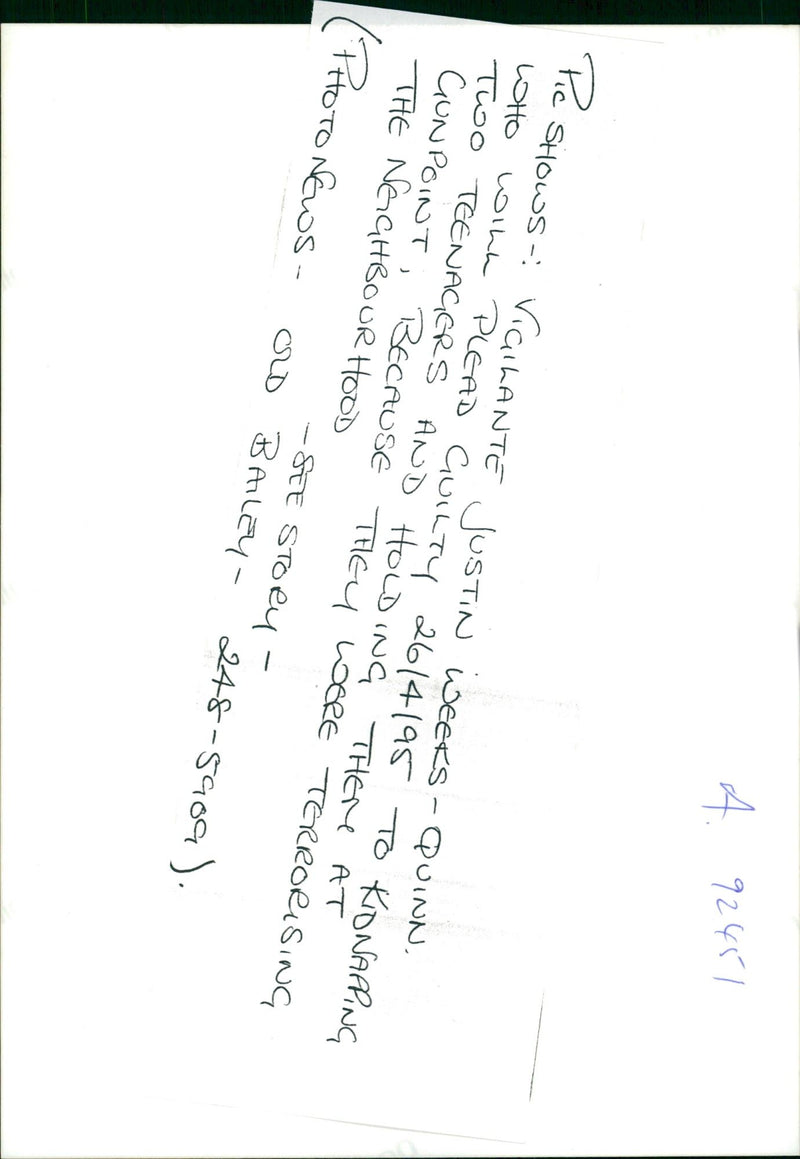 PIC SHOWS-: VIGILANTE JUSTIN WEEKS-QUINN.
WHO WILL PLEAD GUILTY 26/4/95 TO KIDNAPPING
TWO TEENAGERS AND HOLDING THEM AT
GUNPOINT, BECAUSE THEY WERE TERRORISING
THE NEIGHBOURHOOD
-SEE STORY-
(PHOTONEWS- OLD BAILEY- 248-5909).
A. 92451